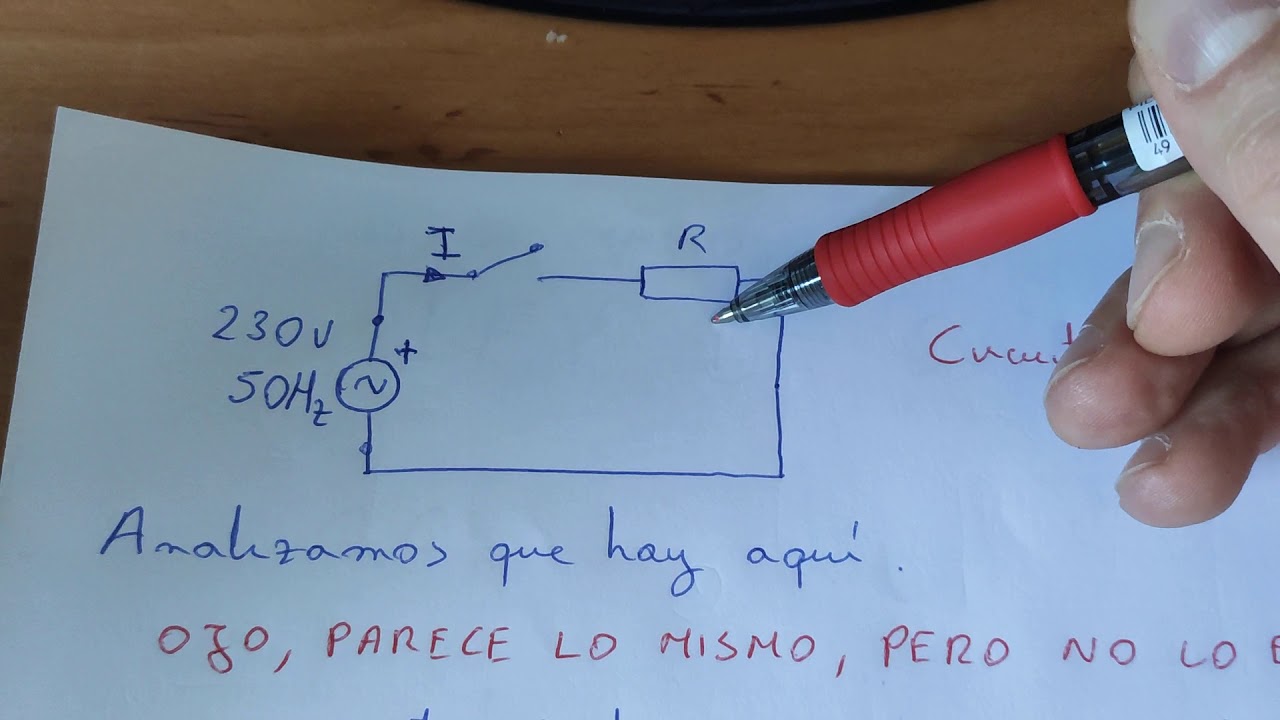 I
R
230V
+
50Hz
Analizamos que hay aquí.
OJO, PARECE LO MISMO, PERO NO LO
49